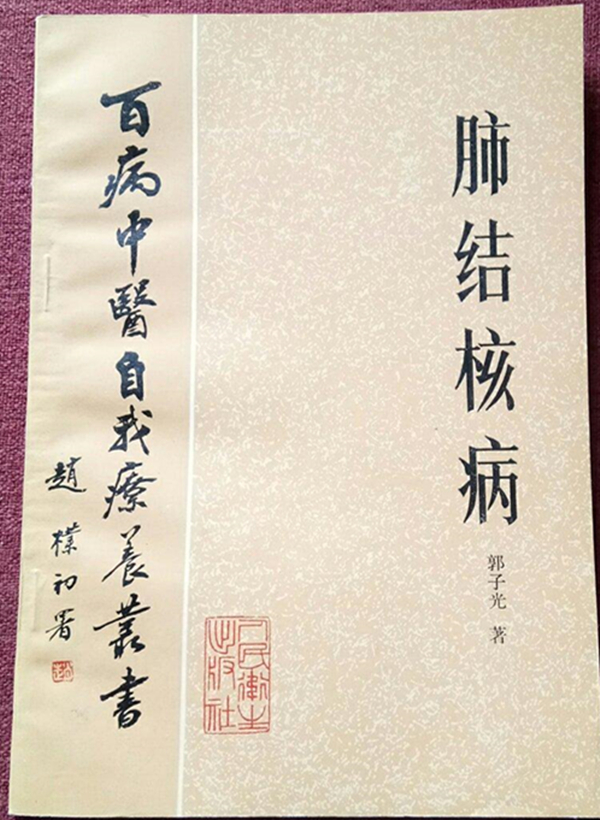 肺结核病
郭子光 著
人民衛生
出版社
百病中醫自我療養叢書
趙樸初署